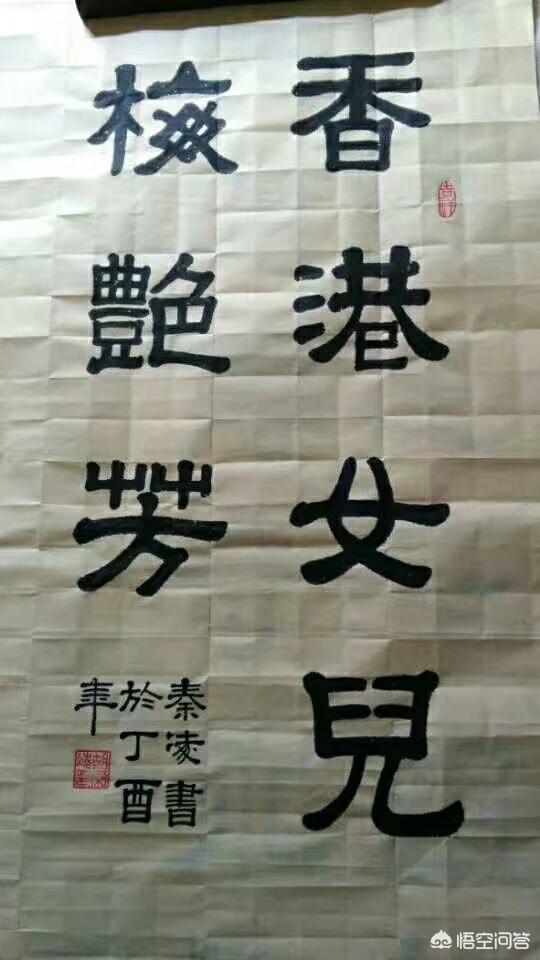 香港女兒
梅艷芳
秦凌書
於丁酉
年
悟空问答